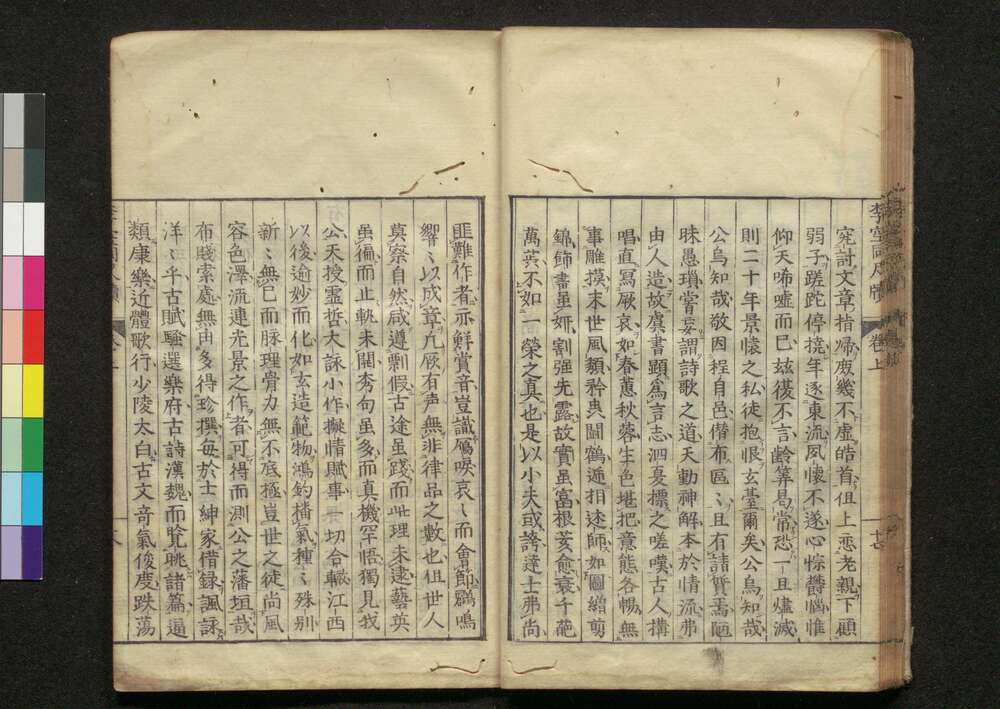 究討文章指歸庶幾不虛皓首但上恋老親下顧
弱子蹉跎停撓年逐東流夙懷不遂心悰欝惱惟
仰天唏嘘而已玆復不言齡筭曷常恐一旦燼滅
則二十年景懷之私徒抱恨玄臺爾矣公烏知哉
公烏知哉敬因程自邑僣布區〻且有請質焉陋
昧愚瑣嘗妄謂詩歌之道天動神解本於情流弗
由人造故虞書顯爲言志泗夏標之嗟嘆古人搆
唱直寫厥哀如春蕙秋蓉生色堪把意態各暢無
事雕摸末世風頽矜䖝鬪鶴遞相述師如圖繒剪
錦餙畫虽妍割强先露故實虽富根荄愈衰千葩
萬蕋不如一榮之真也是以小夫或誇達士弗尚
匪難作者亦鮮賞音豈識鴈唳哀〻而會節鸝鳴
嚮〻以成章凢厥有声無非律品之數也但世人
莫察自然咸遵剽假古途虽踐而此理未逮藝英
虽徧而正軌未闢秀句虽多而真機罕悟獨見我
公天授靈哲大詠小作擬情賦事一切合轍江西
以後逾妙而化如玄造範物鴻鈞播氣種〻殊别
新〻無已而脉理骨力無不底極豈世之徒尚風
容色澤流連光景之作者可得而測公之藩垣哉
布賤索處無由多得珍撰每於士紳家借錄諷詠
洋〻乎古賦騷選樂府古詩漢魏而覽眺諸篇逼
類康樂近體歌行少陵太白古文竒氣俊度跌蕩
卷上